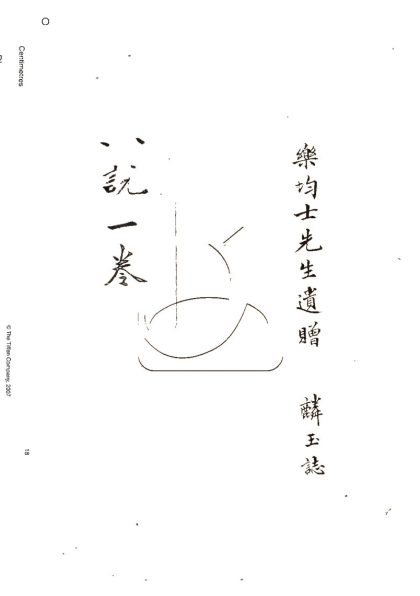 樂均士先生遺贈 麟玉誌
說一卷
Centimetres
© The Tiffen Company, 2007
18